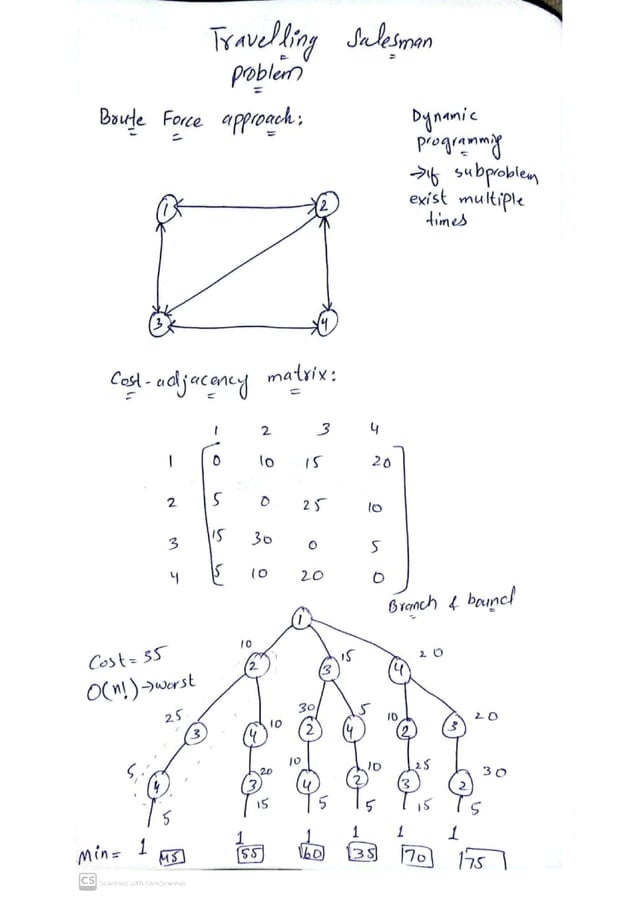 Travelling Salesman
problem
Boute Force approach:
Dynamic
programmig
→If subproblem
exist multiple
times
1 2
3 4
Cost-adjacency matrix:
1 2 3 4
1 0 10 15 20
2 5 0 25 10
3 15 30 0 5
4 5 10 20 0
Branch & bound
1
Cost = 35
O(n!)→worst
10 15 20
2 3 4
25 10 30 5 10 20
3 4 2 4 2 3
5 20 10 10 25 30
4 3 4 2 3 2
5 15 5 5 15 5
Min = 1 1 1 1 1 1
45 55 60 35 70 75
CS Scanned with CamScanner